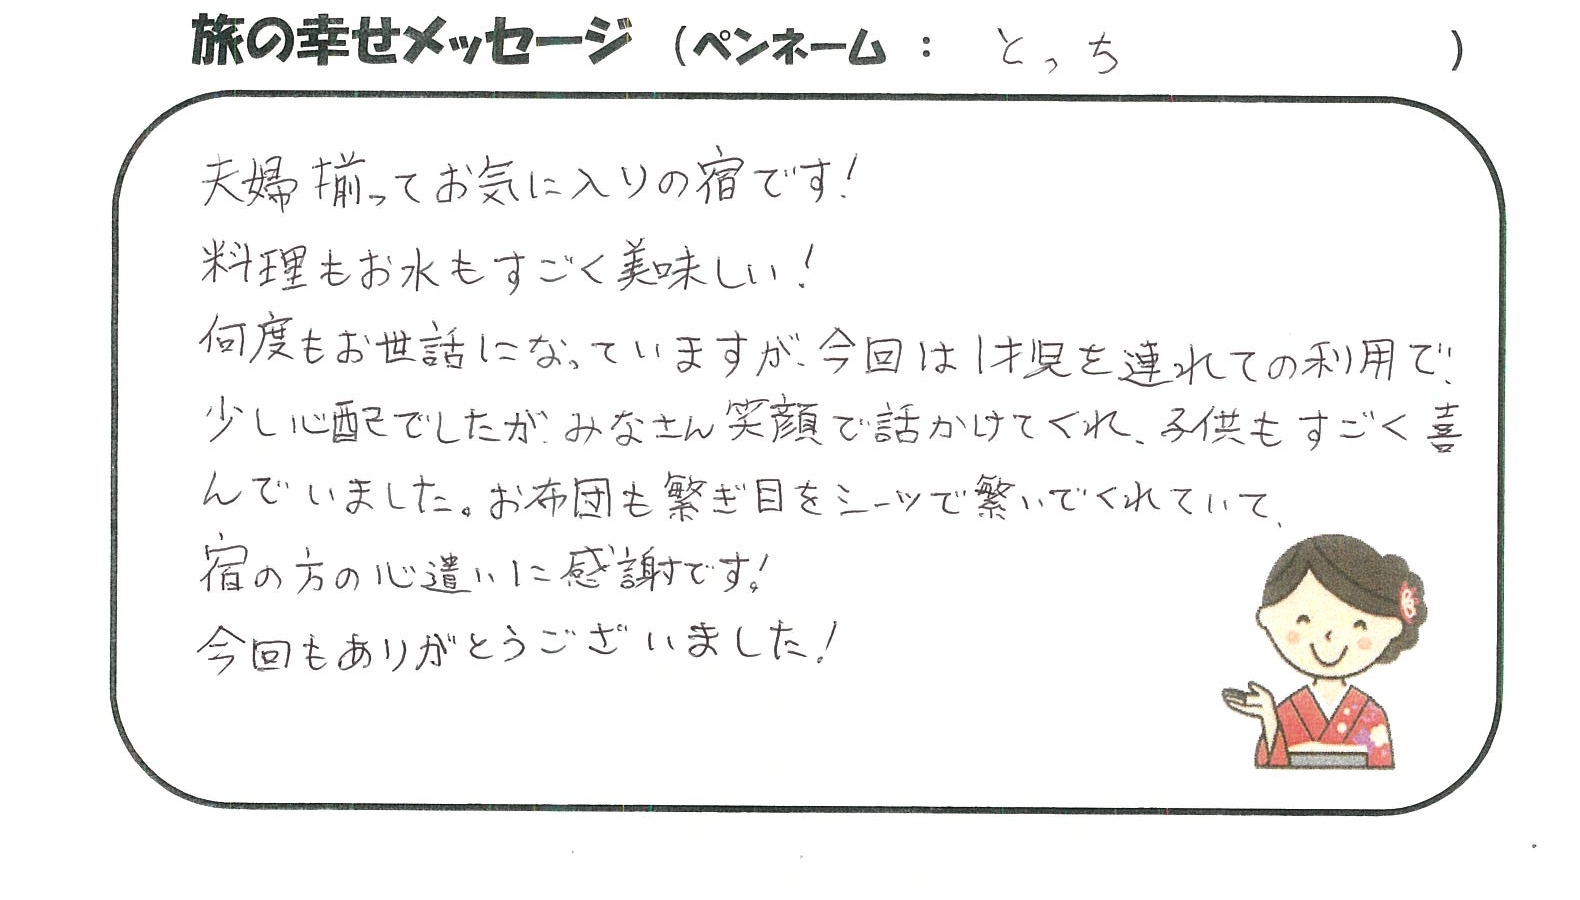 旅の幸せメッセージ (ペンネーム : とっち )
夫婦揃ってお気に入りの宿です!
料理もお水もすごく美味しい!
何度もお世話になっていますが、今回は1才児を連れての利用で、
少し心配でしたが、みなさん笑顔で話かけてくれ、子供もすごく喜
んでいました。お布団も繋ぎ目をシーツで繋いでくれていて、
宿の方の心遣いに感謝です!
今回もありがとうございました!